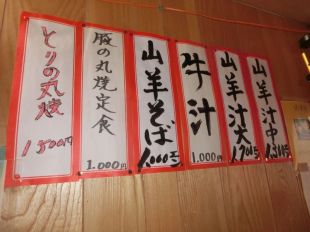 山羊汁中
1,300円
山羊汁大
1,700円
牛汁
1,000円
山羊そば
1,000円
豚の丸焼定食
1.000円
とりの丸焼
1500円